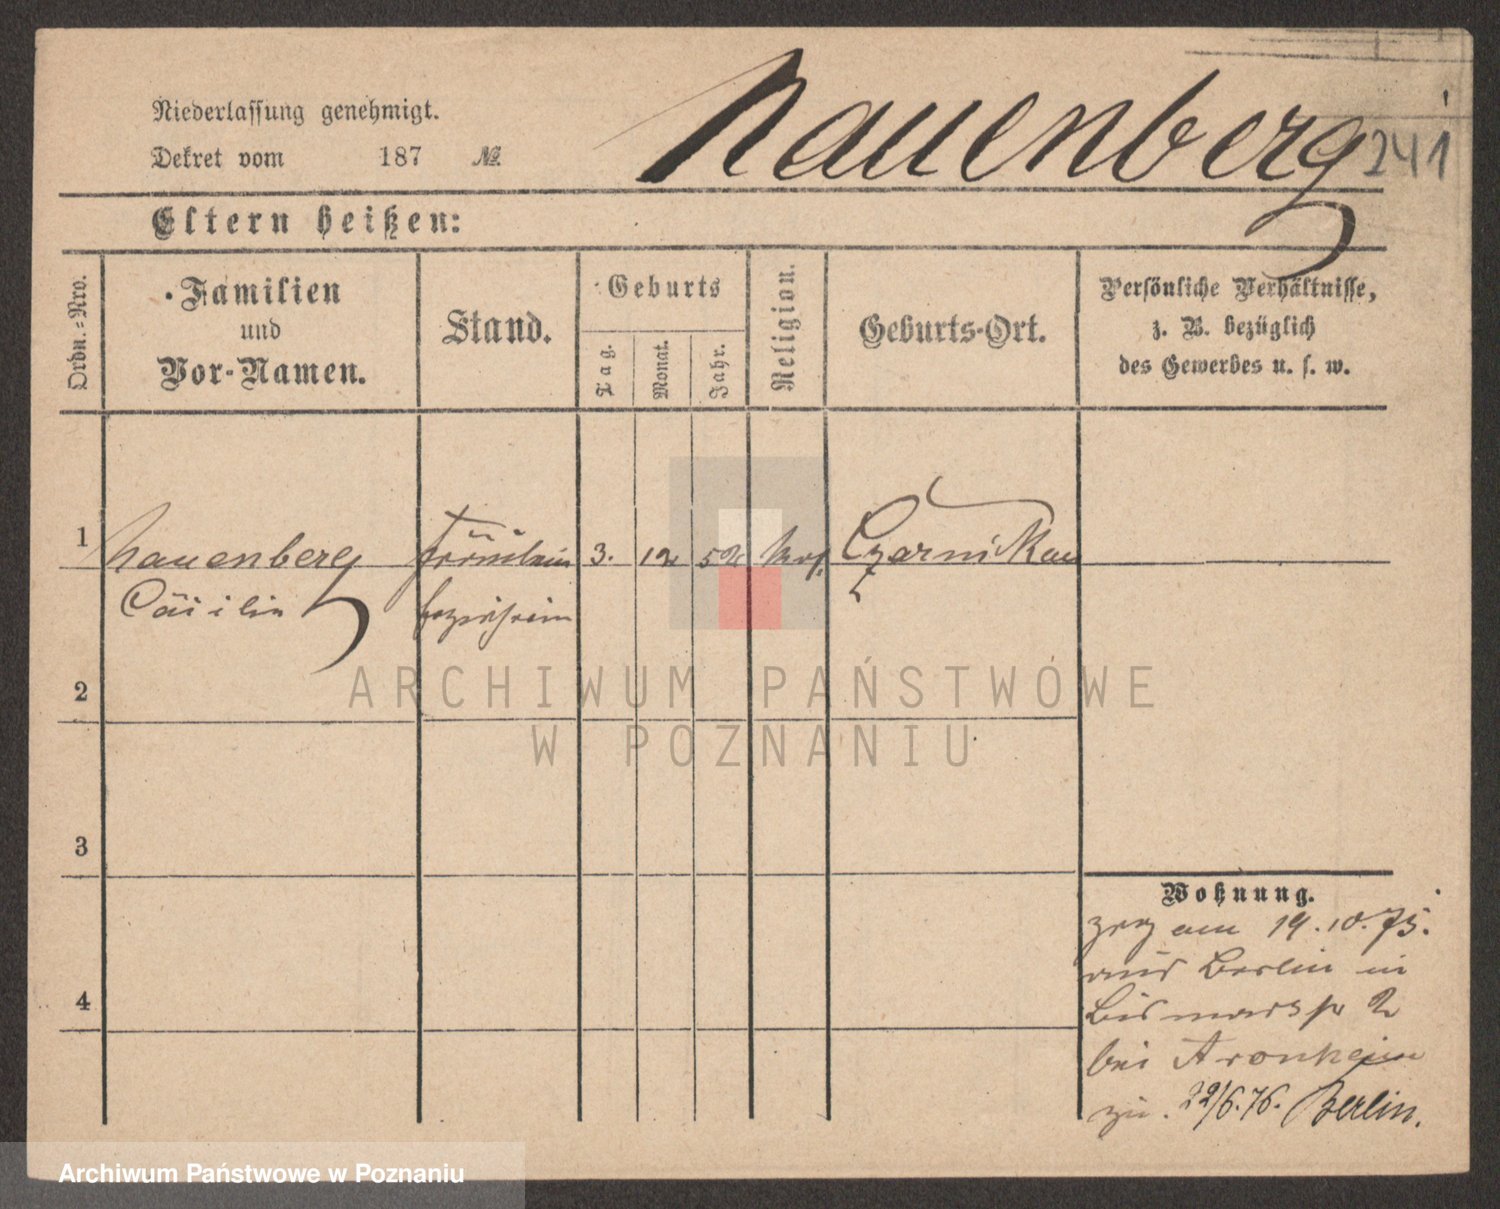 Niederlassung genehmigt.
Dekret vom 187 №
Nauenberg
241
Eltern heißen:
Ordn.-Nro.
Familien
und
Vor-Namen.
Stand.
Geburts
Tag.
Monat.
Jahr.
Religion.
Geburts-Ort.
Persönliche Verhältnisse,
z. B. bezüglich
des Gewerbes u. s. w.
1 Nauenberg Fräulein 3. 12 52 Czarnikau
Cäcilie
2
3
4
Wohnung.
zog am 19.10.75.
aus Berlin in
Bismarckstr 2
bei Aronheim
zu. 22/6.76. Berlin.
ARCHIWUM PAŃSTWOWE
W POZNANIU
Archiwum Państwowe w Poznaniu